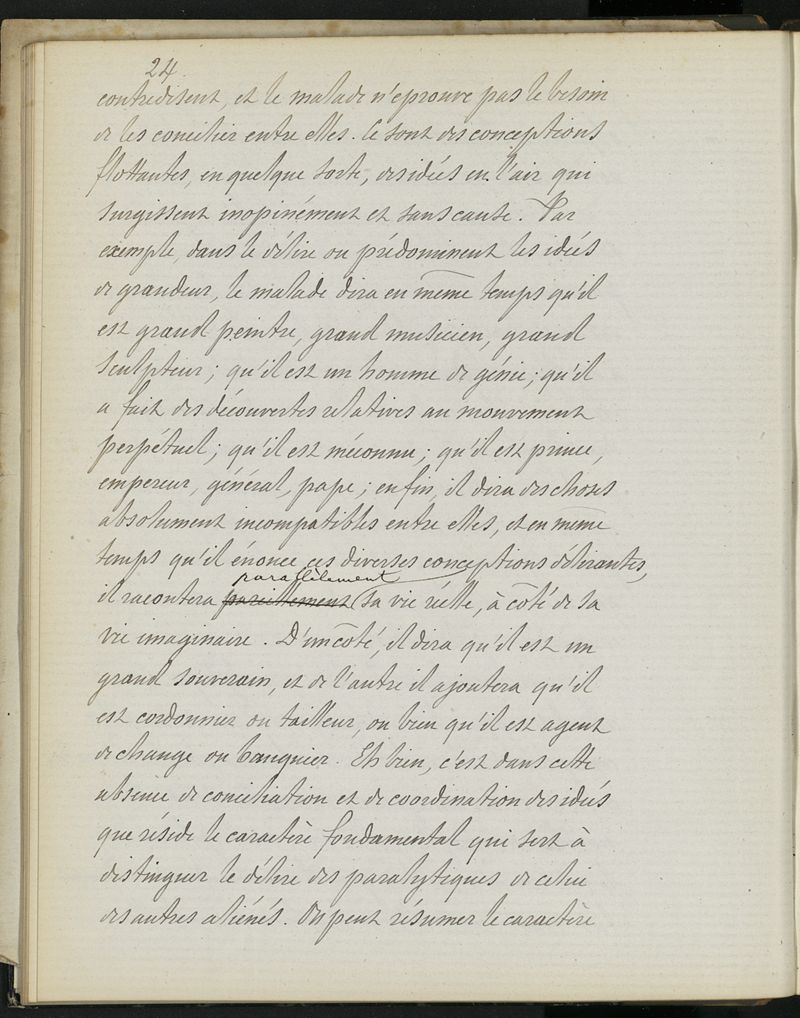 24
contredisent, et le malade n'eprouve pas le besoin
de les concilier entre elles. Ce sont des conceptions
flottantes, en quelque sorte, des idées en l'air qui
surgissent inopinément et sans cause. Par
exemple, dans le délire ou prédominent les idées
de grandeur, le malade dira en même temps qu'il
est grand peintre, grand musicien, grand
sculpteur ; qu'il est un homme de génie ; qu'il
a fait des découvertes relatives au mouvement
perpétuel ; qu'il est méconnu ; qu'il est prince,
empereur, général, pape ; enfin, il dira des choses
absolument incompatibles entre elles, et en même
temps qu'il énonce ces diverses conceptions délirantes,
parallèlement
il racontera pareillement sa vie réelle, à côté de sa
vie imaginaire. D'un côté, il dira qu'il est un
grand souverain, et de l'autre il ajoutera qu'il
est cordonnier ou tailleur, ou bien qu'il est agent
de change ou banquier. Eh bien, c'est dans cette
absence de conciliation et de coordination des idées
que réside le caractère fondamental qui sert à
distinguer le délire des paralytiques de celui
des autres aliénés. On peut résumer le caractère